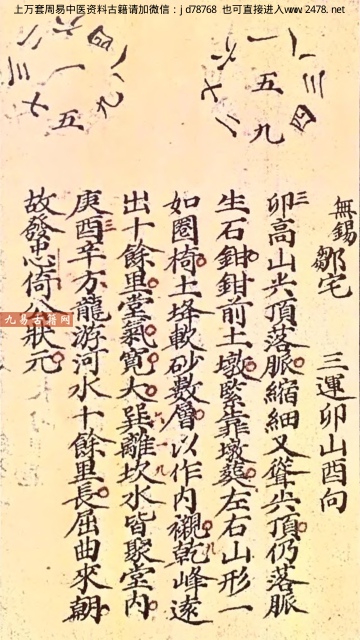 上万套周易中医资料古籍请加微信：jd78768 也可直接进入www.2478.net
無錫鄒宅 三運卯山酉向
卯高山尖頂落脈縮細又聳尖頂仍落脈
生石鉗鉗前土墩緊靠墩塟左右山形一
如圈椅土峰軟砂數層以作內襯乾峰遠
出十餘里堂氣寬大巽離坎水皆聚堂內
庚酉辛方龍游河水十餘里長屈曲來朝
故發忠倚公狀元
九易古籍网